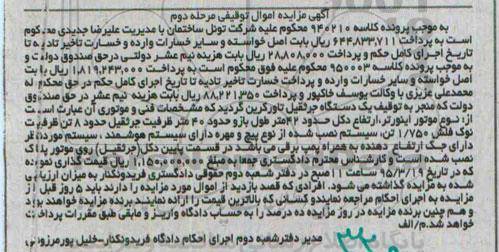 آگهی مزایده اموال توقیفی مرحله دوم
به موجب پرونده کلاسه ۹۴۰۲۱۰ محکوم علیه شرکت تونل ساختمان با مدیریت علیرضا جدیدی محکوم
است به پرداخت ۶۴۴/۸۳۳/۷۱۱ ریال بابت اصل خواسته و سایر خسارات وارده و خسارت تاخیر تادیه تا
تاریخ اجرای کامل حکم و پرداخت ۲۸/۸۰۸/۰۰۰ ریال بابت هزینه نیم عشر دولتی در حق صندوق دولت و
به موجب پرونده کلاسه ۹۵۰۰۰۳ محکوم علیه فوق محکوم است به پرداخت ۱/۸۱۹/۲۴۳/۰۰۰ ریال بابت
اصل خواسته و سایر خسارات وارده و پرداخت خسارت تاخیر تادیه تا تاریخ اجرای کامل حکم در حق محکوم له
محمدعلی عزیزی با وکالت یوسف خاکپور و پرداخت ۸۸/۲۲۱/۳۵۰ ریال بابت هزینه نیم عشر در حق صندوق
دولت که منجر به توقیف یک دستگاه جرثقیل تاورکرین گردید که مشخصات فنی و موتوری آن عبارت است
از: نوع موتور اینورتر، ارتفاع دکل حدود ۴۲متر طول بازو حدود ۴۰ متر ظرفیت جرثقیل حدود ۸ تن ظرفیت
نوک فلش ۱/۷۵۰ تن، سیستم نصب شده از نوع پیچ و مهره دارای سیستم هوشمند، سیستم موردنظر
دارای جک ارتفاع دهنده به همراه پمپ برقی می باشد در قسمت پایین دکل (جرثقیل) روی موتور پلاک
نصب شده است و کارشناس محترم دادگستری جمعا به مبلغ ۱/۱۵۰/۰۰۰/۰۰۰ ریال قیمت گذاری نموده
که در تاریخ ۹۵/۳/۱۹ ساعت ۱۱ صبح در دفتر شعبه دوم حقوقی دادگستری فریدونکنار به میزان ارزیابی
شده به مزایده گذاشته می شود. افرادی که قصد بازدید از اموال مورد مزایده را دارند باید ۵ روز قبل از
مزایده به اجرای احکام مراجعه نمایند و کسانی که بالاترین قیمت را ارائه نمایند برنده مزایده خواهند بود
و هم چنین برنده مزایده در روز مزایده ده درصد را به حساب دادگاه واریز و مابقی طبق مقررات پرداخت
خواهد شد.م/الف
مدیر دفتر شعبه دوم اجرای احکام دادگاه فریدونکنار-خلیل پورمرزونی